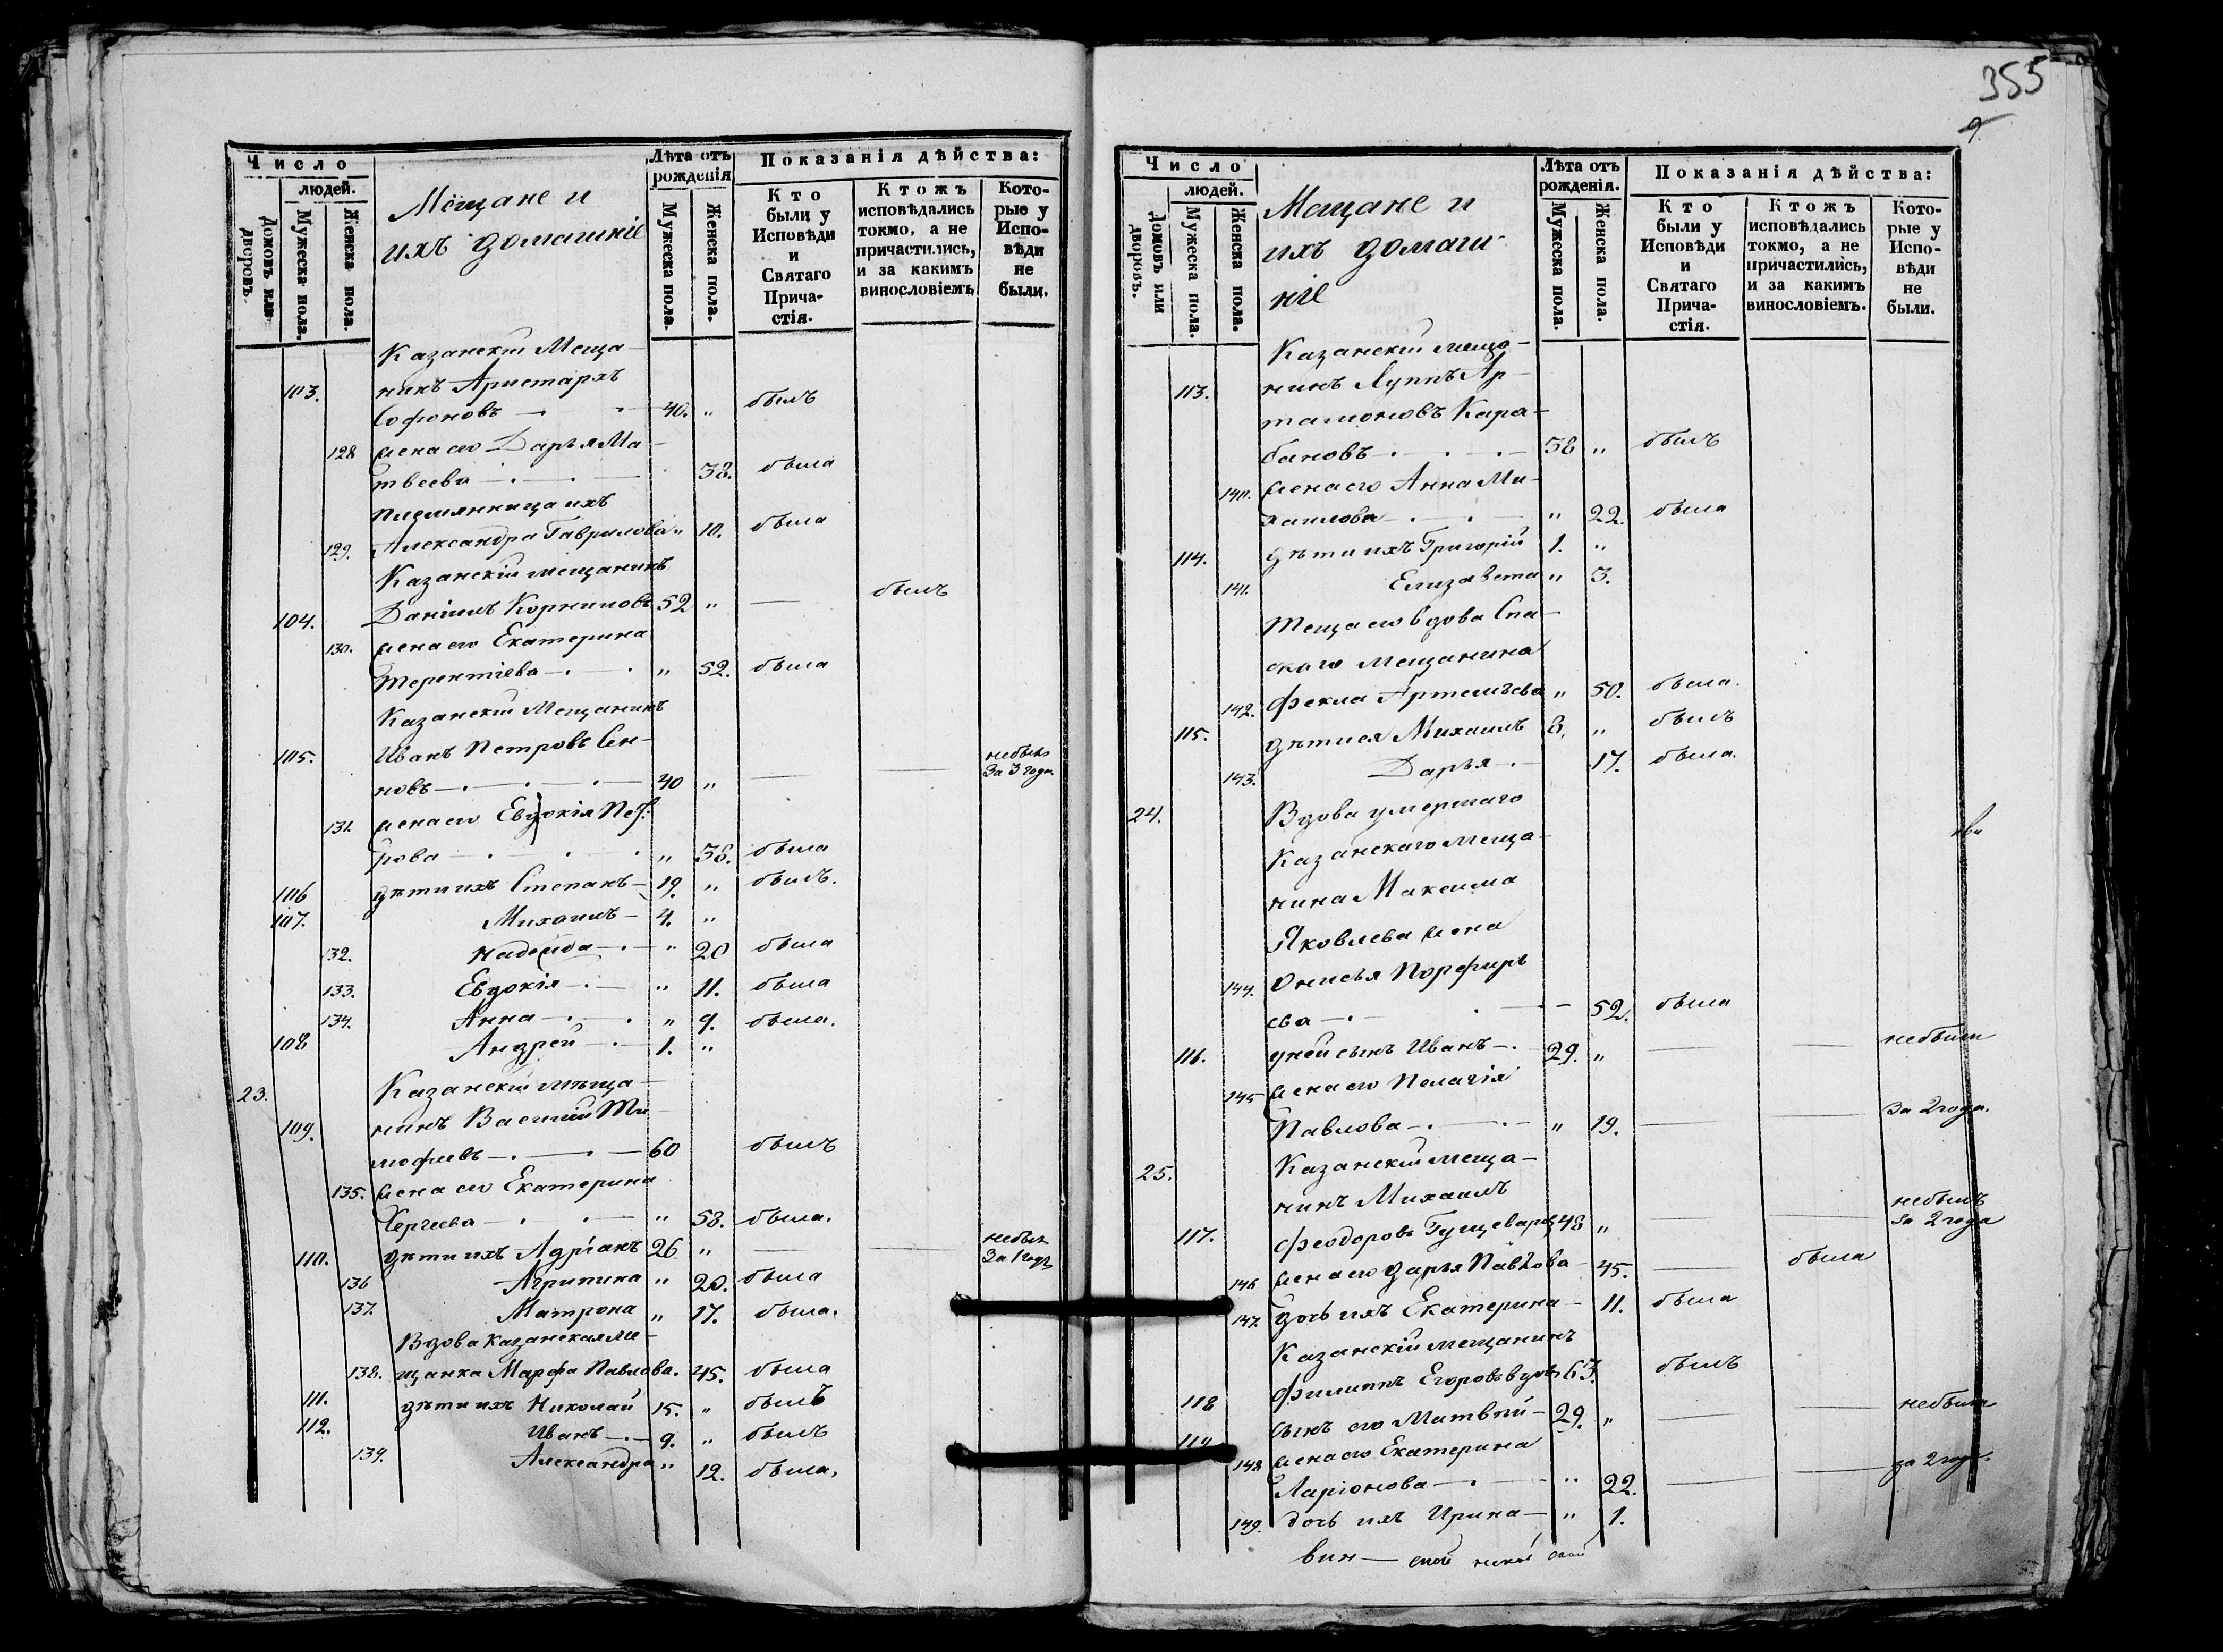 355
9
Число
людей.
Домовъ или дворовъ.
Мужеска пола.
Женска пола.
Мещане и
ихъ домашніе
Лѣта отъ рожденія
Мужеска пола.
Женска пола.
Показанія дѣйства:
Кто были у Исповѣди и Святаго Прича-стія.
Ктожъ исповѣдались токмо, а не причастились, и за какимъ винословіемъ
Кото-рые у Испо-вѣди не были.
Казанскій Меща-
103. никъ Аристархъ
Софоновъ — 40. " былъ
128 жена его Дарья Ма-
твеева — 38. была
племянница ихъ
129. Александра Гаврилова " 10. была
Казанскій мещанинъ
104. Даніилъ Корниловъ 52 " — былъ
130. жена его Екатерина
Терентіева — " 52. была
Казанскій Мещанинъ
105. Иванъ Петровъ Сен-
новъ — 40 " — — небылъ За 3 года
131. жена его Евдокія Пет-
рова — " 38. была
106 дѣти ихъ Степанъ — 19. " былъ.
107. Михаилъ — 4. "
132. Надежда — " 20 была
133. Евдокія — " 11. была
134. Анна — " 9. была.
108 Андрей — 1. "
23. Казанскій меща-
109. нинъ Василій Ти-
мофеевъ — 60 былъ
135. жена его Екатерина
Сергеева — " 58. была.
110. дѣти ихъ Адріанъ 26 " — — небылъ За 1 годъ
136 Агрипина " 20. была
137. Матрона " 17. была.
Вдова Казанская Ме-
138. щанка Марфа Павлова. 45. была
111. дѣти ихъ Николай 15. " былъ
112. Иванъ — 9. " былъ
139. Александра " 12. была,
Число
людей.
Домовъ или дворовъ.
Мужеска пола.
Женска пола.
Мещане и
ихъ домаш-
ніе
Лѣта отъ рожденія.
Мужеска пола.
Женска пола.
Показанія дѣйства:
Кто были у Исповѣди и Святаго Прича-стія.
Ктожъ исповѣдались токмо, а не причастились, и за какимъ винословіемъ.
Кото-рые у Испо-вѣди не были.
Казанскій меща-
113. нинъ Луппъ Ар-
тамоновъ Кара-
бановъ — 38 " былъ
140. жена его Анна Ми-
хаилова — " 22. была
114. дѣти ихъ Григорій 1. "
141. Елизавета " 3.
Теща его вдова Спа-
скаго мещанина
142. Фекла Артемьева " 50. была.
115. дѣти ея Михаилъ 8. " былъ
143. Дарья — 17. была.
24. Вдова умершаго
Казанскаго меща-
нина Максима
Яковлева жена
144. Онисья Порфирь
ева — 52. была
116. у ней сынъ Иванъ — 29. " — — небыли
145 жена его Пелагія
Павлова — " 19. — — За 2 года.
25. Казанскій меща-
нинъ Михаилъ
117. Феодоровъ 48 " — — небылъ за 2 года
146 жена его Дарья Павлова — 45. — была
147. дочь ихъ Екатерина — 11. была
Казанскій мещанинъ
118 Филиппъ Егоровъ вдовъ 63. былъ
119 сынъ его Матвѣй — 29. " — — небыли
148 жена его Екатерина
Ларіонова — " 22. — — за 2 года.
149. дочь ихъ Ирина — " 1.